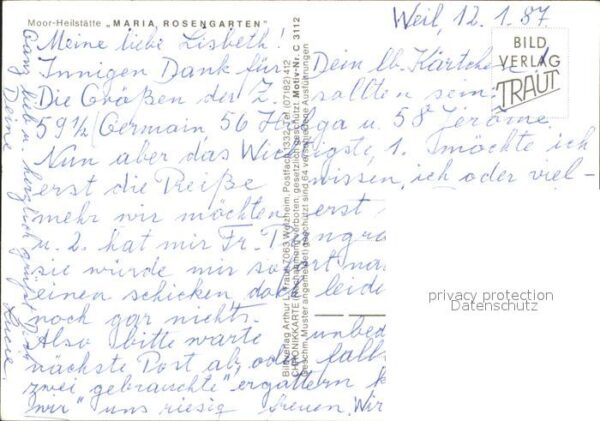 Moor-Heilstätte „MARIA ROSENGARTEN"
Weil, 12.1.87
Meine liebe Lisbeth!
Innigen Dank für Dein lb. Kärtchen
Die Größen der Z. sollten sein:
59½ Germain, 56 Helga u. 58 Jerôme.
Nun aber das Wichtigste, 1. möchte ich
erst die Preiße wissen, ich oder viel-
mehr wir möchten erst
u. 2. hat mir Fr.
sie würde mir sofort
einen schicken, leider
noch gar nichts.
Also bitte warte unbed
nächste Post ab, oder falls
zwei "gebrauchte" ergattern
"wir" uns riesig freuen. Wir
Ganz lieb u. herzlich grüßt Dich
Deine Lucie.
BILD
VERLAG
TRAUT
Bildverlag Arthur Traut, 7063 Welzheim, Postfach 1332, Tel. (07182) 412
CHRONIKKARTE (Nachahmung verboten, gesetzlich geschützt. Motiv-Nr. C 3112
Geschm. Muster angemeldet) geschützt sind 64 verschiedene Ausführungen
privacy protection
Datenschutz